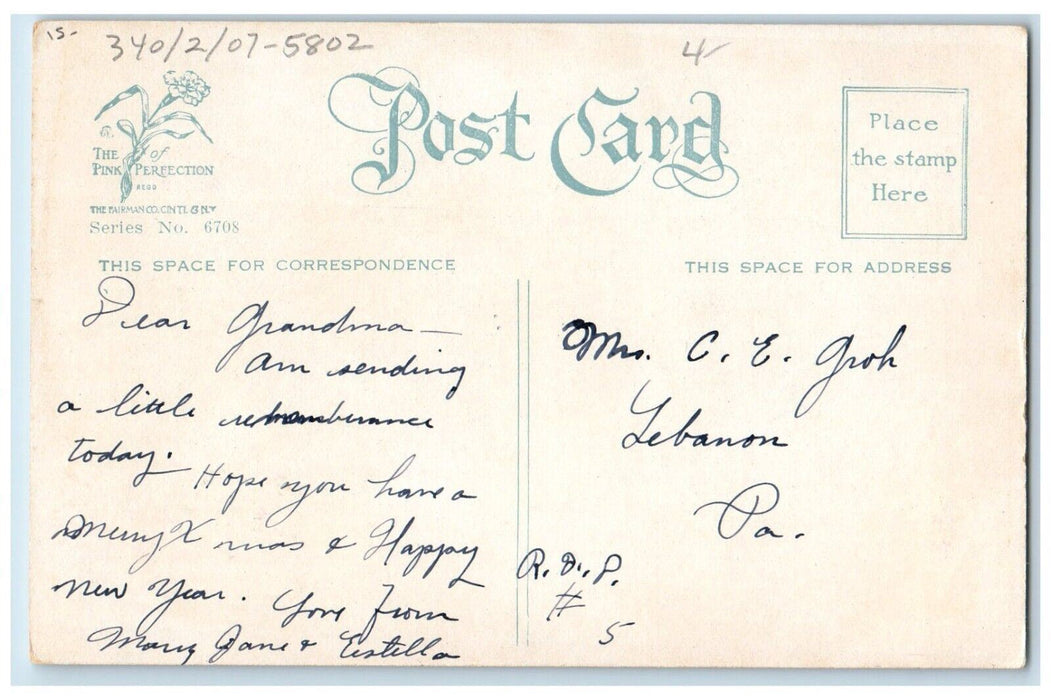 15-
340/2/07-5802
4
THE PINK of PERFECTION
REGD
THE FAIRMAN CO. CIN'TI. & N.Y
Series No. 6708
Post Card
Place
the stamp
Here
THIS SPACE FOR CORRESPONDENCE
THIS SPACE FOR ADDRESS
Dear Grandma —
Am sending
a little rememberance
today.
Hope you have a
Merry X mas & Happy
New Year. Love from
Mary Jane & Estella
Mrs. C. E. Groh
Lebanon
Pa.
R. D.
# 5